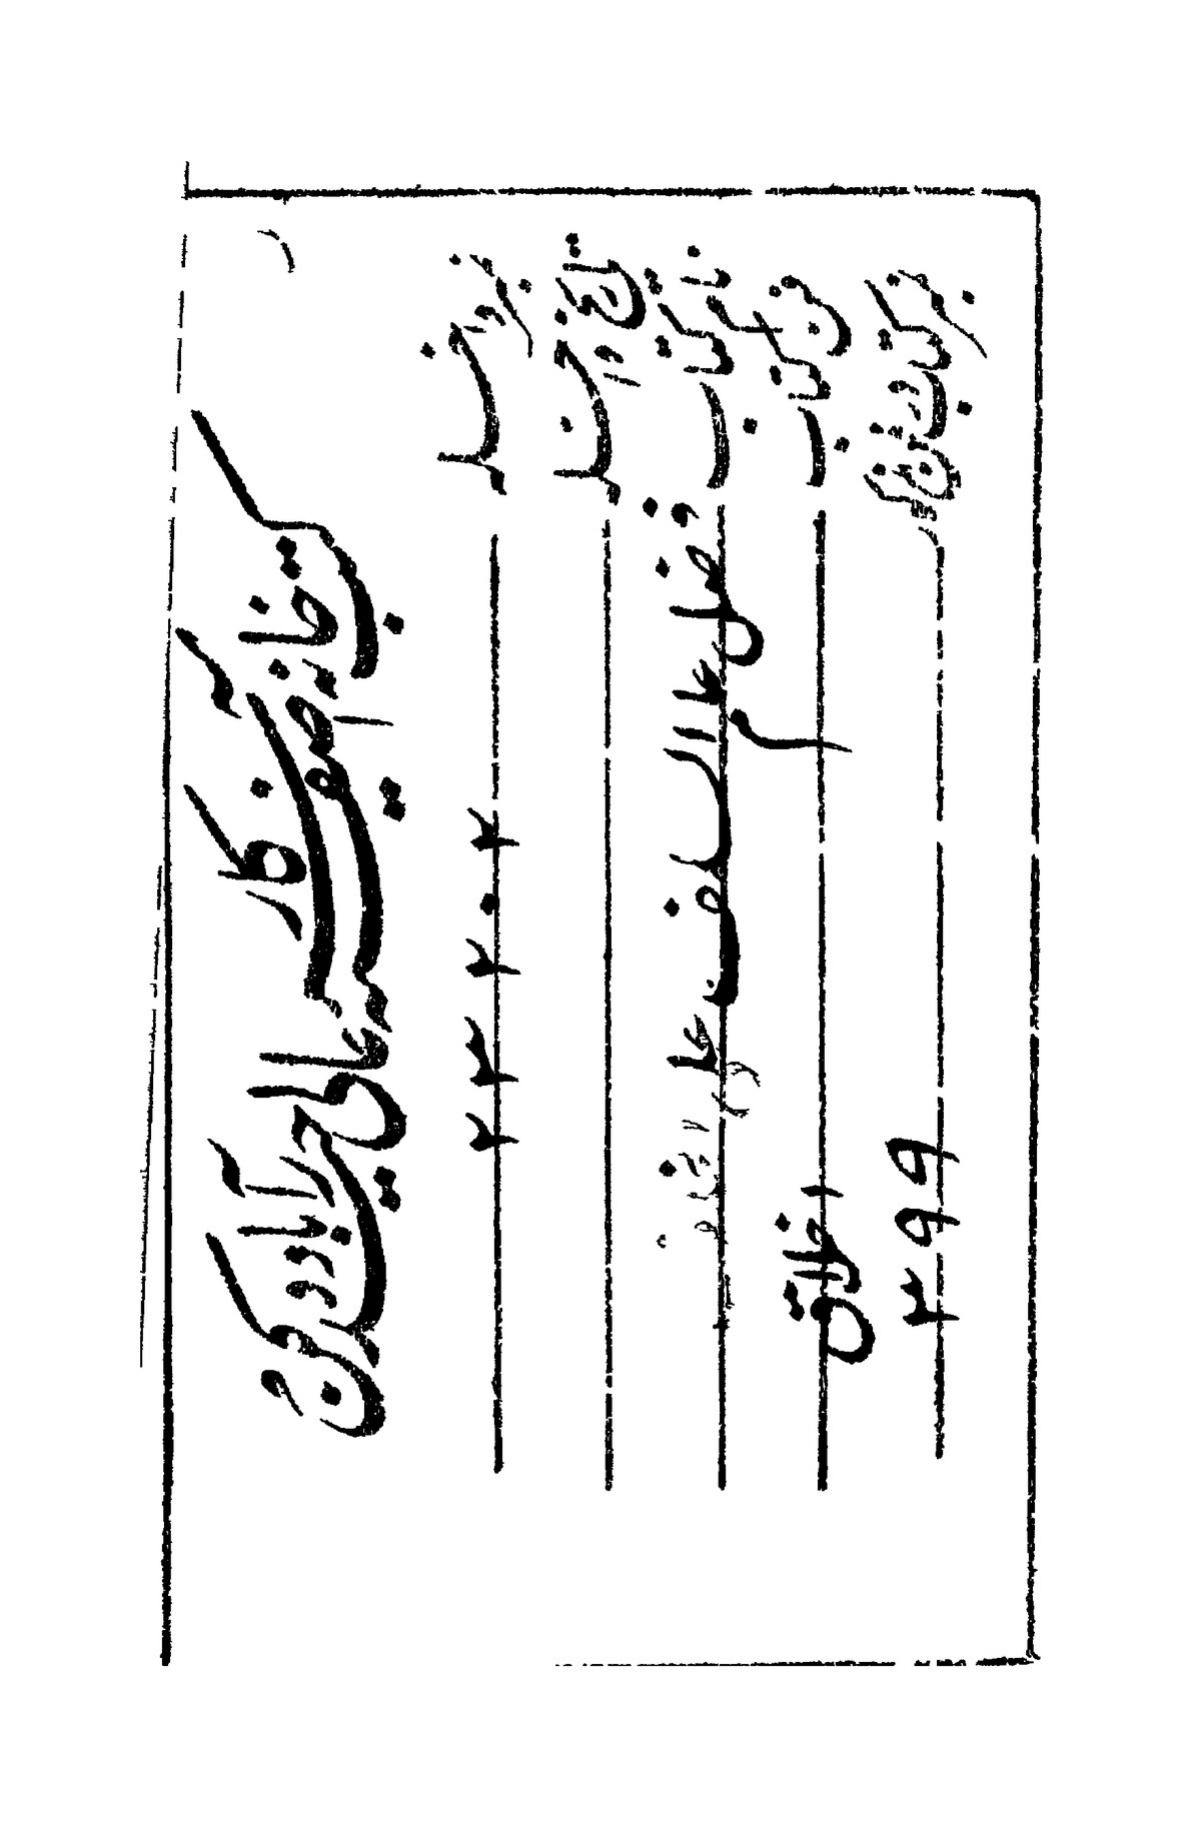 کتب خانہ آصفیہ سرکار عالی حیدرآباد دکن
نمبر داخلہ ۲۳۲۰۲
تاریخ داخلہ
نام کتاب فضل علم السلف علی
فن کتاب اخلاق
نمبر کتاب در فن مذکور ۳۹۹